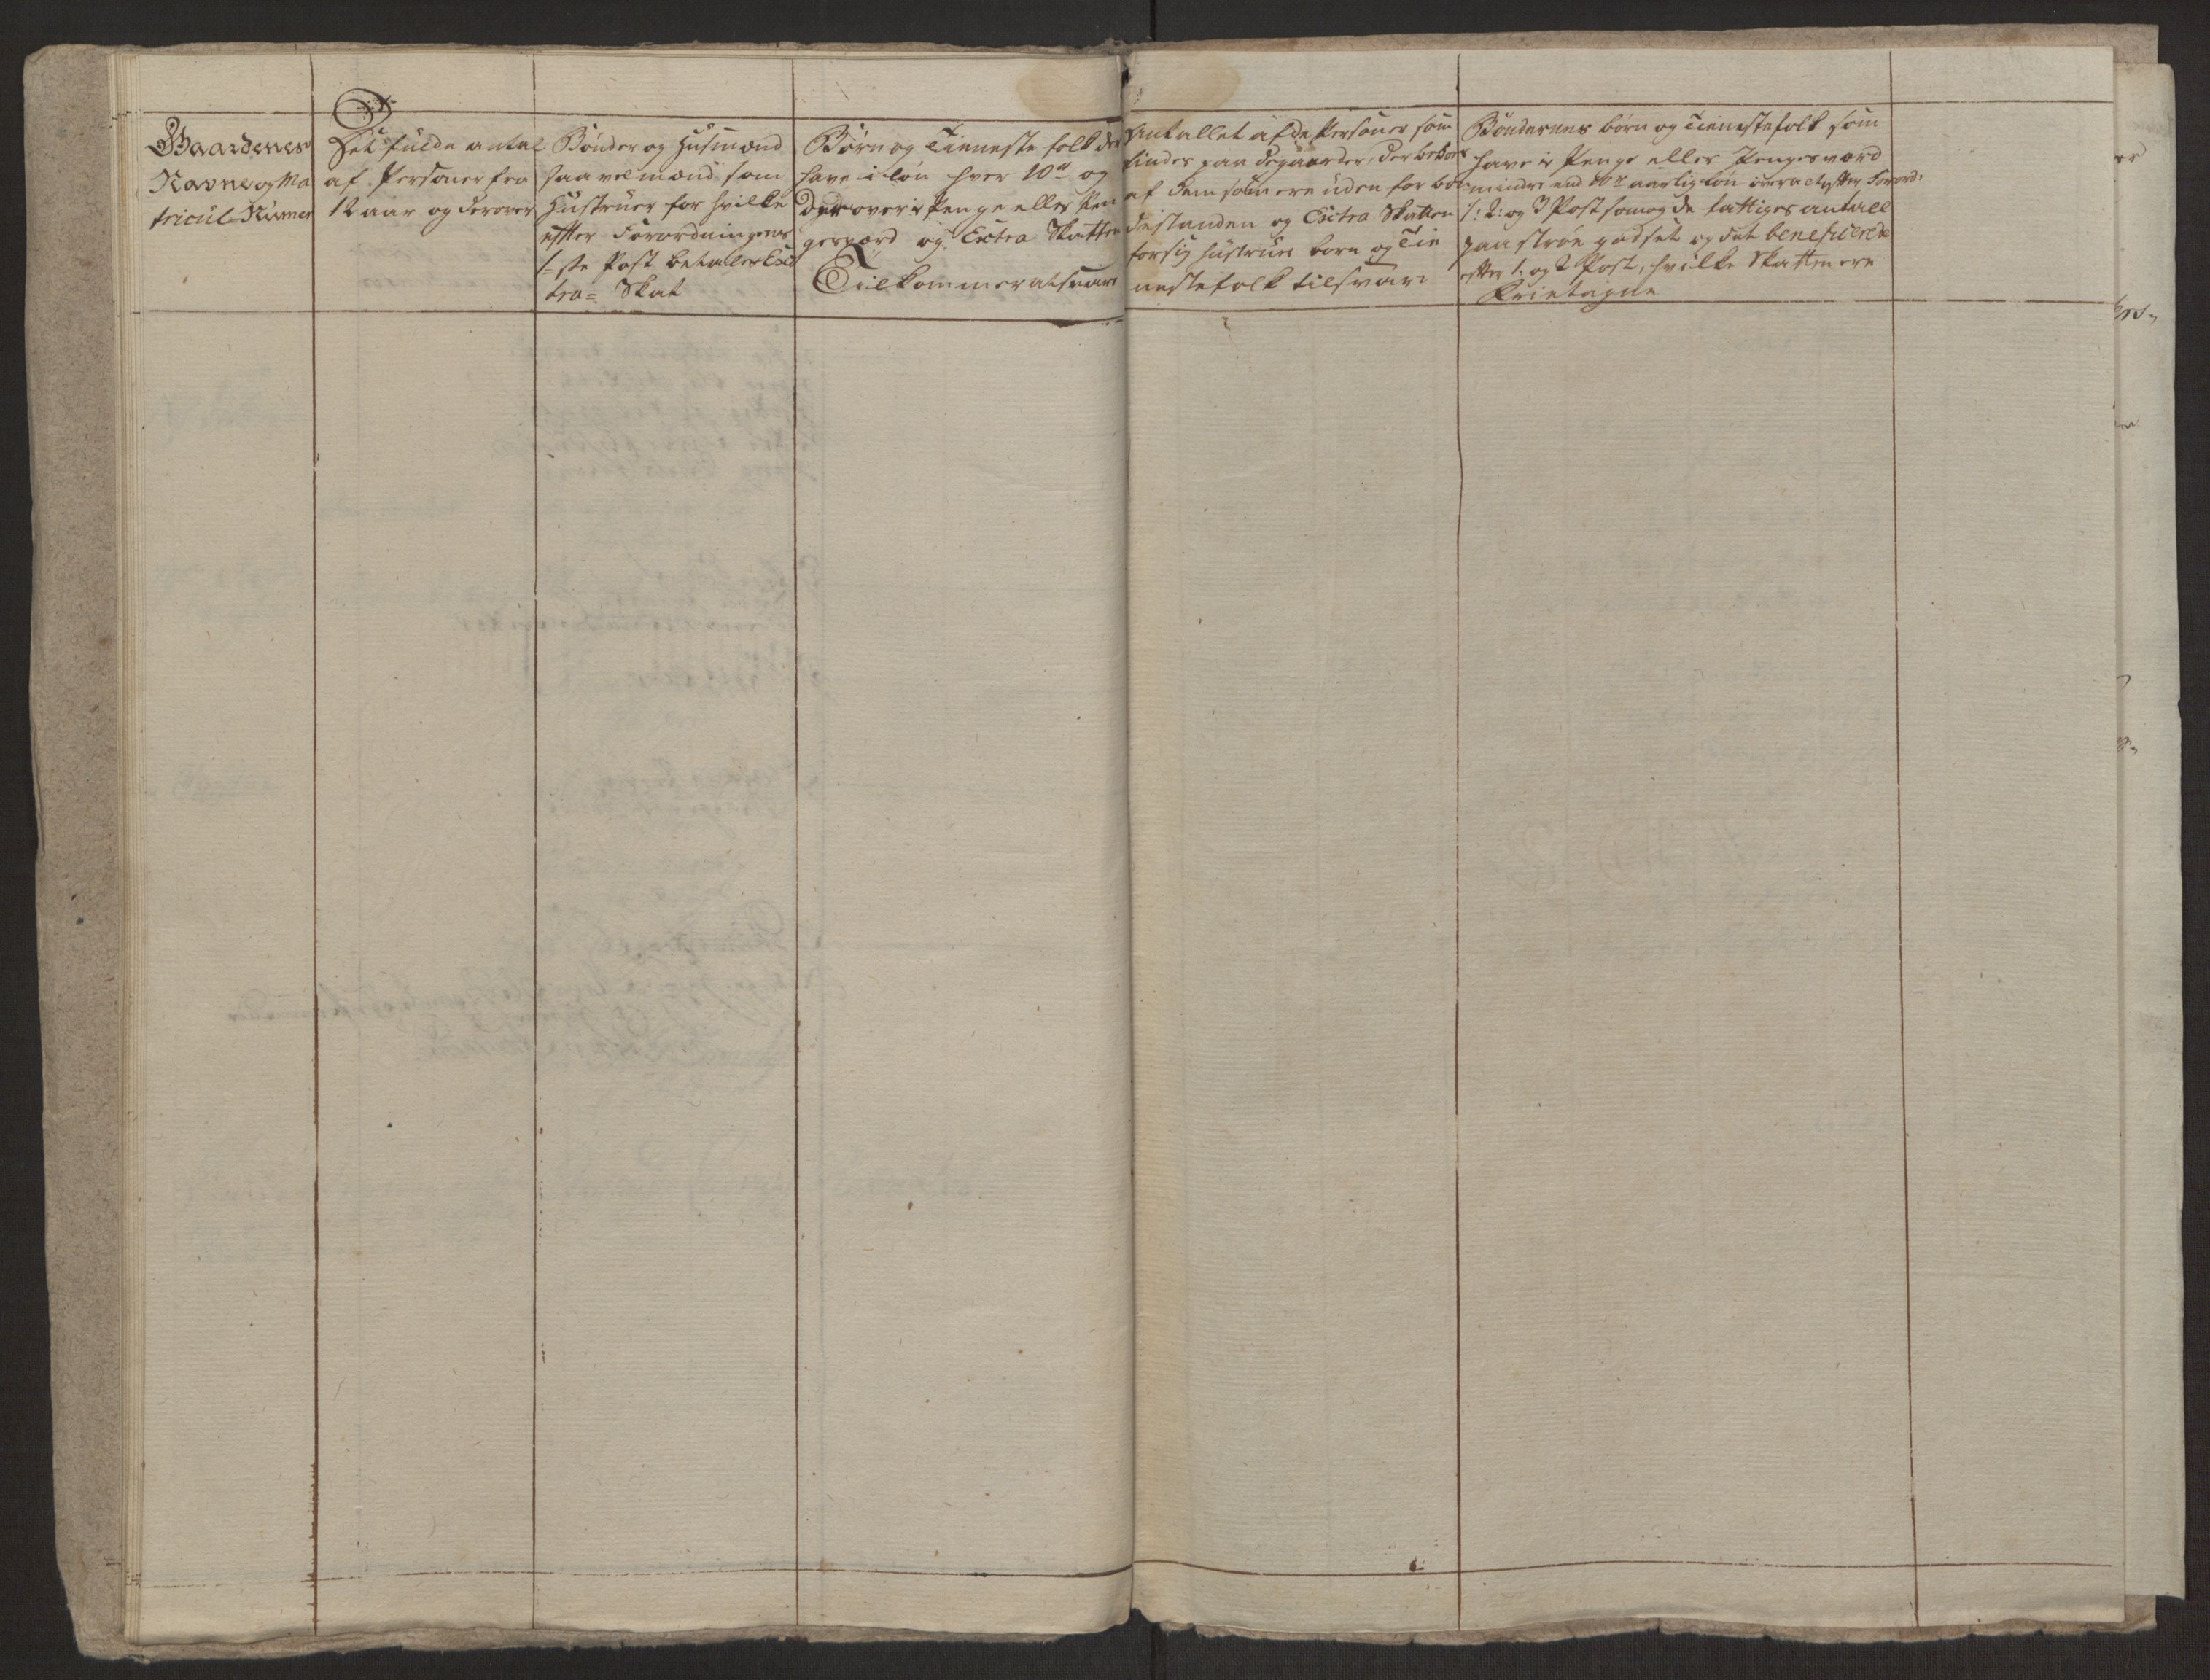 Gaardenes
Navne og Ma
tricul-Numer
Det fulde antal
af Personer fra
12 aar og derover
Bönder og Husmænd
saavel mænd som
Hustruer for hvilke
efter Forordningens
1= ste Post betales Exs
tra= Skat
Börn og Tienneste folk der
have i lön hver 10 og
derover i Penge eller Pen
gersværd og Extra Skatten
Tilkommer at svare
Antallet af de Personer som
findes paa de gaarder, der beboes
af dem som ere uden for bon
destanden og Extra Skatten
for sig hustrue börn og Tie
nestefolk tilsvare
Böndernes börn og Tienestefolk som
have i Penge eller Penges værd
mindre end 10 aarlig lön efter Forord:
1: 2: og 3 Post som og de fattiges antall
paa godset og det beneficerede
efter 1. og 2 Post, hvilke Skatten ere
Frietagne